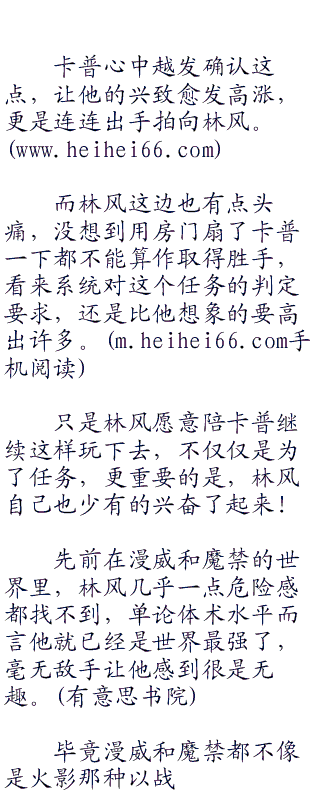 卡普心中越发确认这
点，让他的兴致愈发高涨，
更是连连出手拍向林风。
(www.heihei66.com)
而林风这边也有点头
痛，没想到用房门扇了卡普
一下都不能算作取得胜手，
看来系统对这个任务的判定
要求，还是比他想象的要高
出许多。(m.heihei66.com手
机阅读)
只是林风愿意陪卡普继
续这样玩下去，不仅仅是为
了任务，更重要的是，林风
自己也少有的兴奋了起来！
先前在漫威和魔禁的世
界里，林风几乎一点危险感
都找不到，单论体术水平而
言他就已经是世界最强了，
毫无敌手让他感到很是无
趣。(有意思书院)
毕竟漫威和魔禁都不像
是火影那种以战